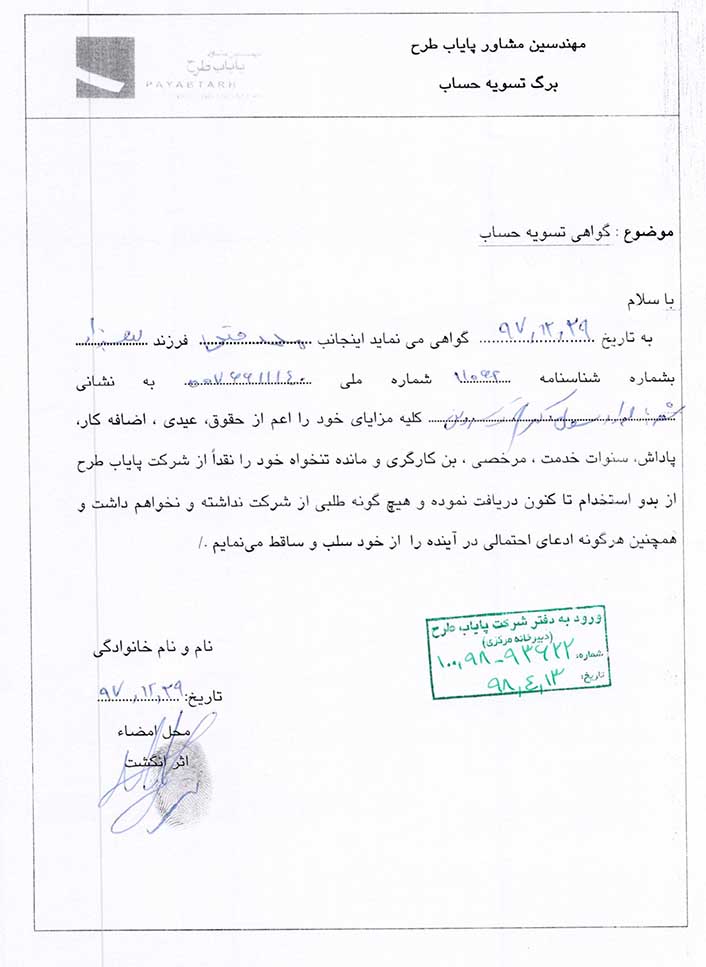 مهندسین مشاور پایاب طرح
برگ تسویه حساب
پایاب طرح
PAYABTARH
موضوع : گواهی تسویه حساب
با سلام
به تاریخ ۹۷,۱۲,۲۹ گواهی می نماید اینجانب فرزند
بشماره شناسنامه شماره ملی به نشانی
کلیه مزایای خود را اعم از حقوق، عیدی ، اضافه کار،
پاداش، سنوات خدمت ، مرخصی ، بن کارگری و مانده تنخواه خود را نقداً از شرکت پایاب طرح
از بدو استخدام تا کنون دریافت نموده و هیچ گونه طلبی از شرکت نداشته و نخواهم داشت و
همچنین هرگونه ادعای احتمالی در آینده را از خود سلب و ساقط می‌نمایم ./
ورود به دفتر شرکت پایاب طرح
(دبیرخانه مرکزی)
شماره: ۱۰۰,۹۸-۹۳۶۲۲
تاریخ: ۹۸,۴,۱۳
نام و نام خانوادگی
تاریخ: ۹۷,۱۲,۲۹
محل امضاء
اثر انگشت